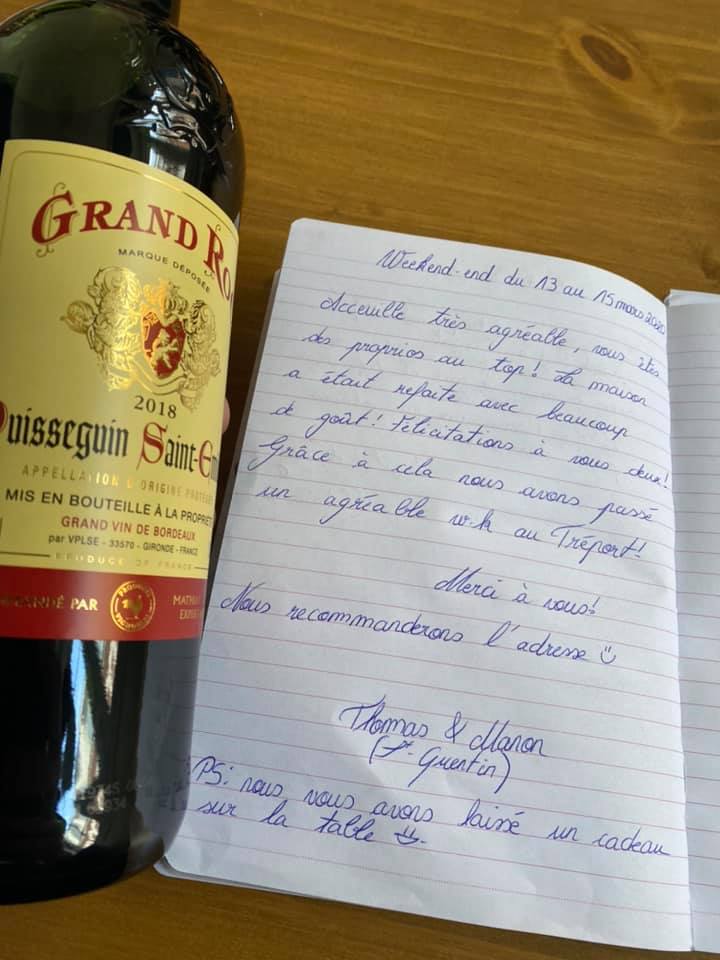 GRAND RO
MARQUE DÉPOSÉE
2018
Puisseguin Saint-Em
APPELLATION D'ORIGINE PROTÉGÉE
MIS EN BOUTEILLE À LA PROPRIÉTÉ
GRAND VIN DE BORDEAUX
par VPLSE - 33570 - GIRONDE - FRANCE
PRODUCE OF FRANCE
MANDÉ PAR
MATH
EXPE
Weekend-end du 13 au 15 mars 2020
Acceuille très agréable, vous êtes
des proprios au top! La maison
a était refaite avec beaucoup
de goût! Félicitations à vous deux!
Grâce à cela nous avons passé
un agréable w.k au Tréport!
Merci à vous!
Nous recommanderons l'adresse
Thomas & Manon
(St-Quentin)
PS: nous vous avons laissé un cadeau
sur la table